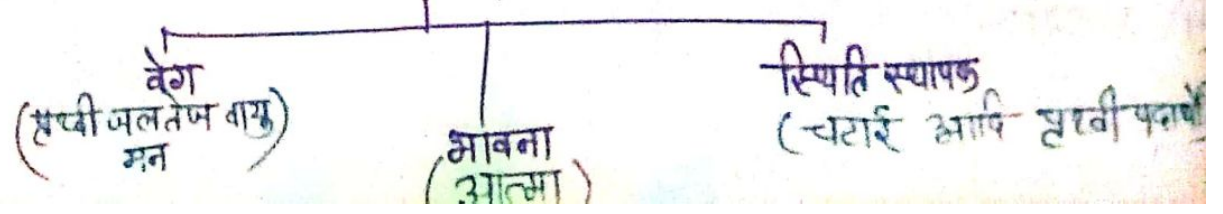 वेग
(पृथ्वी जल तेज वायु)
मन
भावना
(आत्मा)
स्थिति स्थापक
(चटाई आदि पृथ्वी पदार्थों